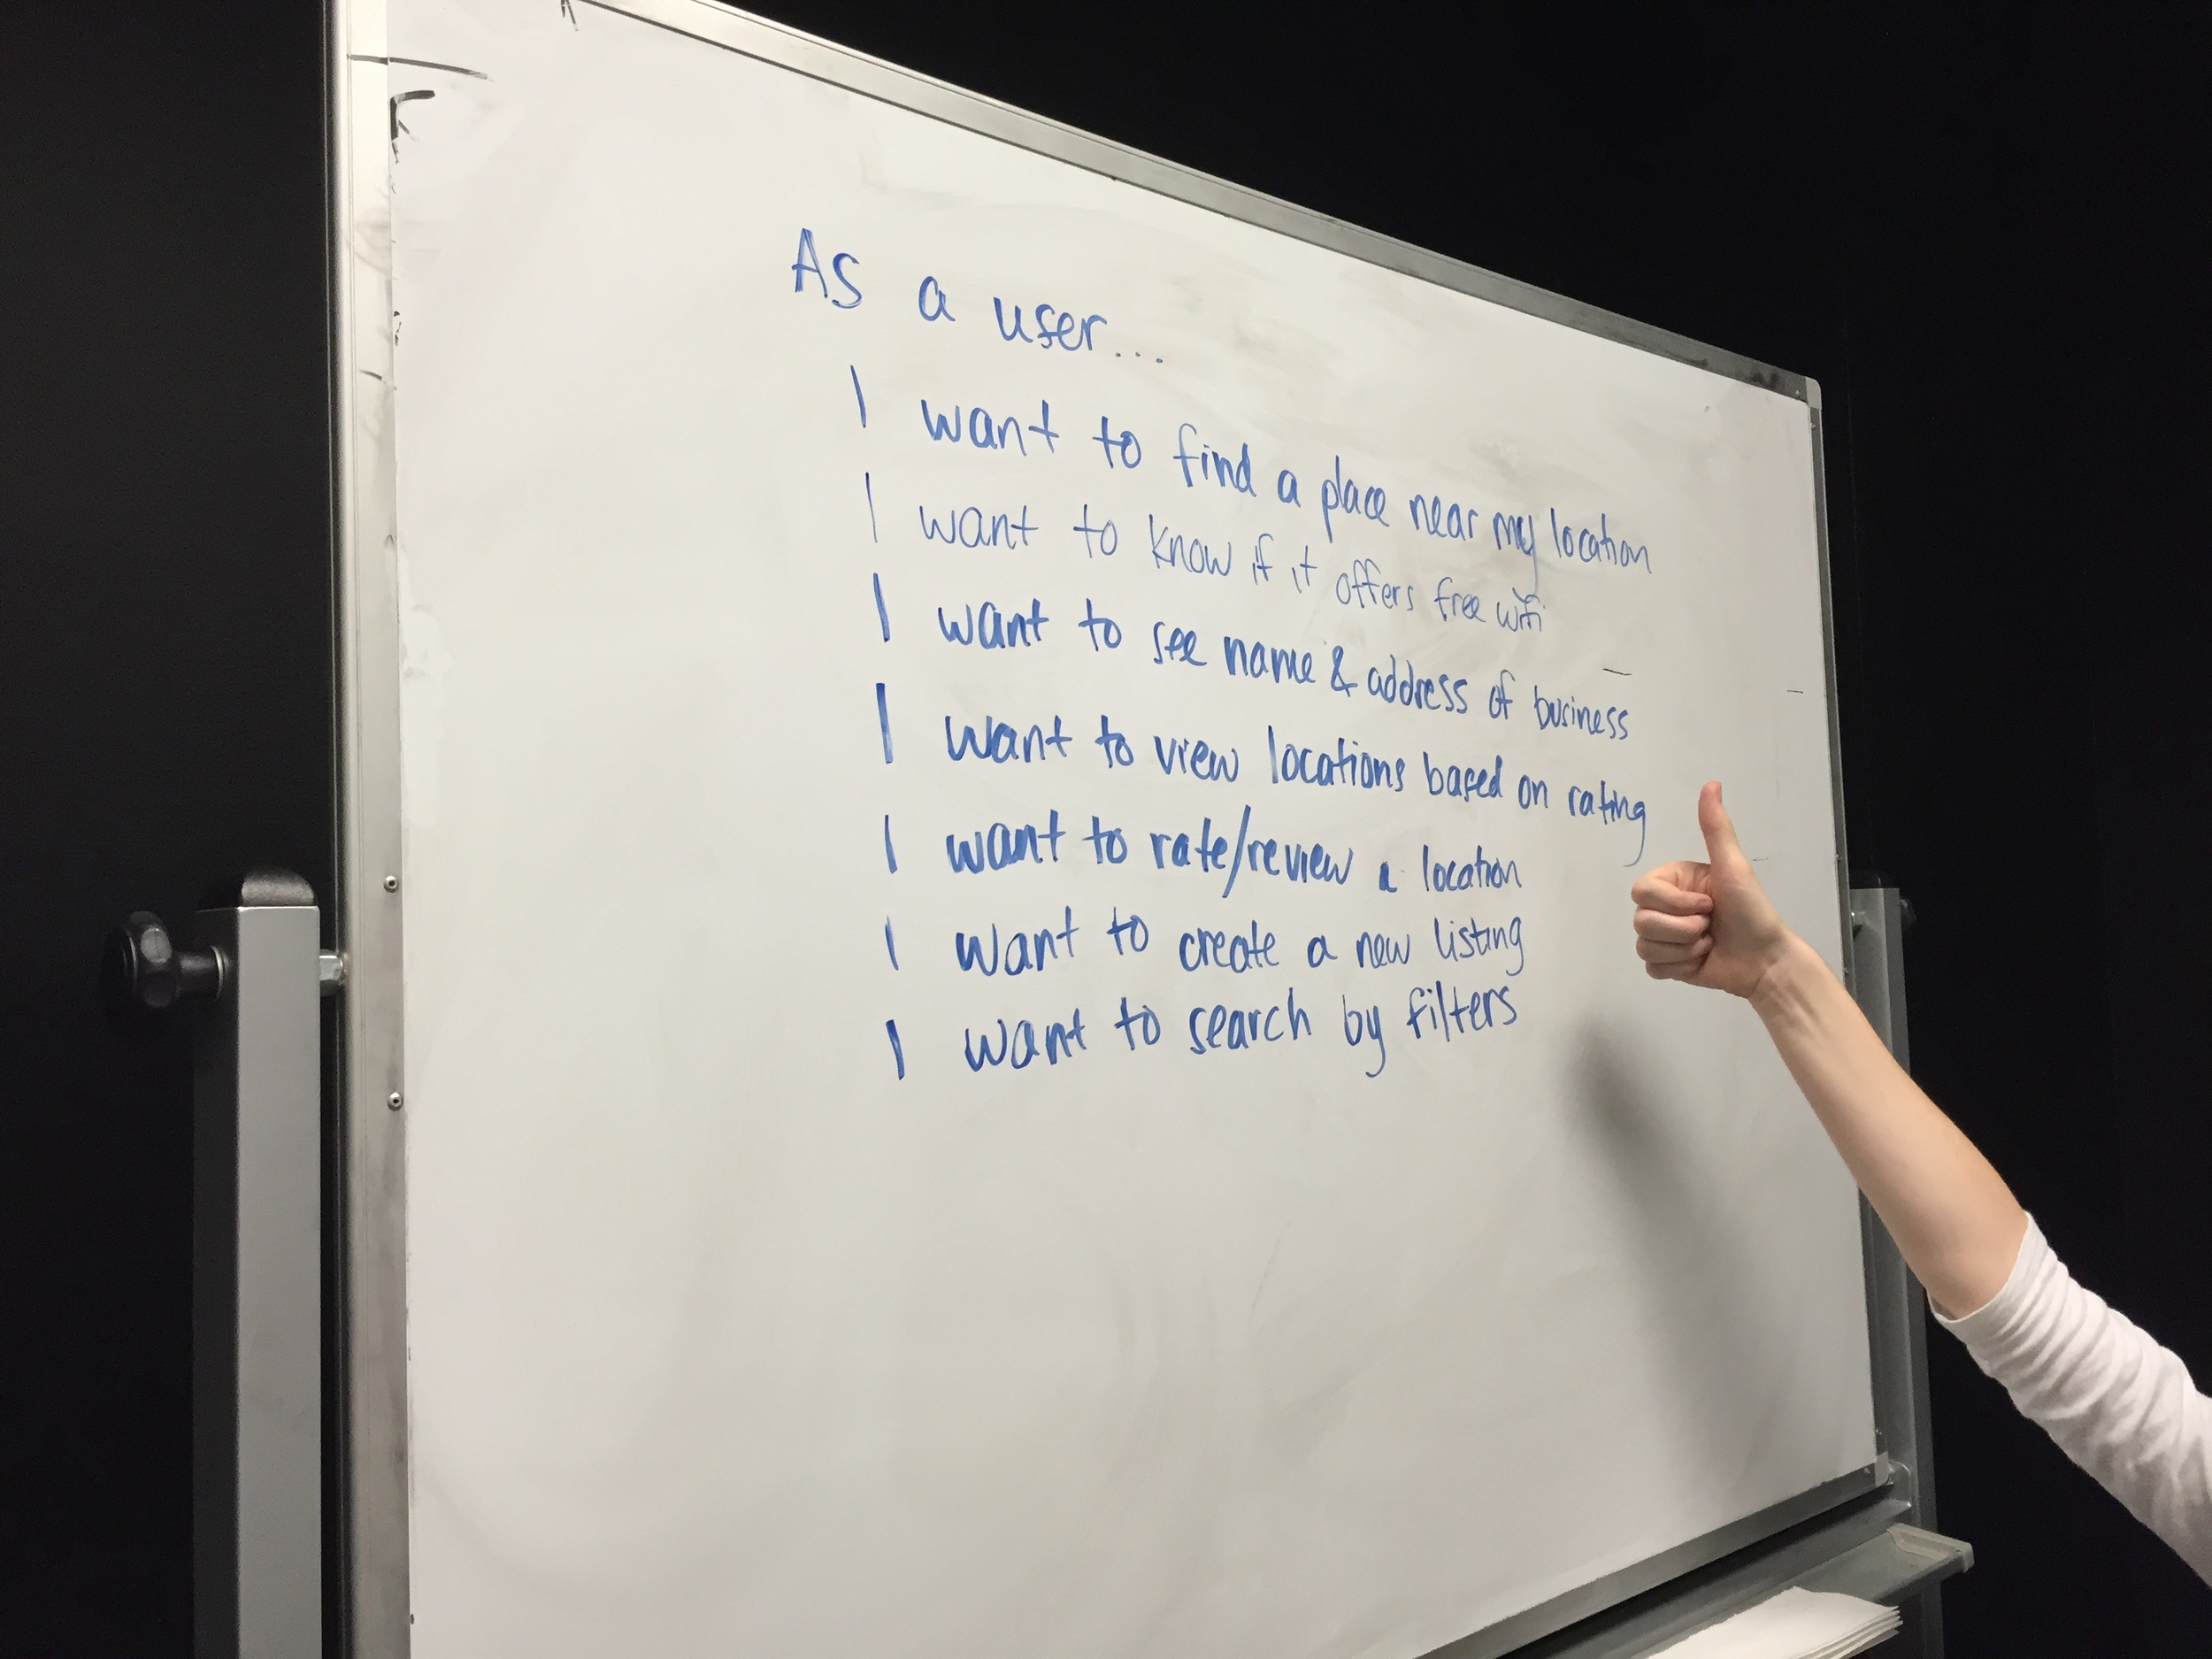 As a user...
I want to find a place near my location
I want to know if it offers free wifi
I want to see name & address of business
I want to view locations based on rating
I want to rate/review a location
I want to create a new listing
I want to search by filters